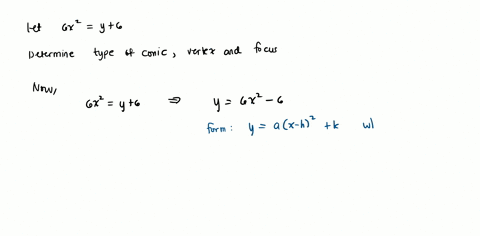 Let 6x² = y+6
Determine type of conic, vertex and focus
Now,
6x² = y+6 ⇒ y = 6x² - 6
form: y = a(x-h)² + k w/